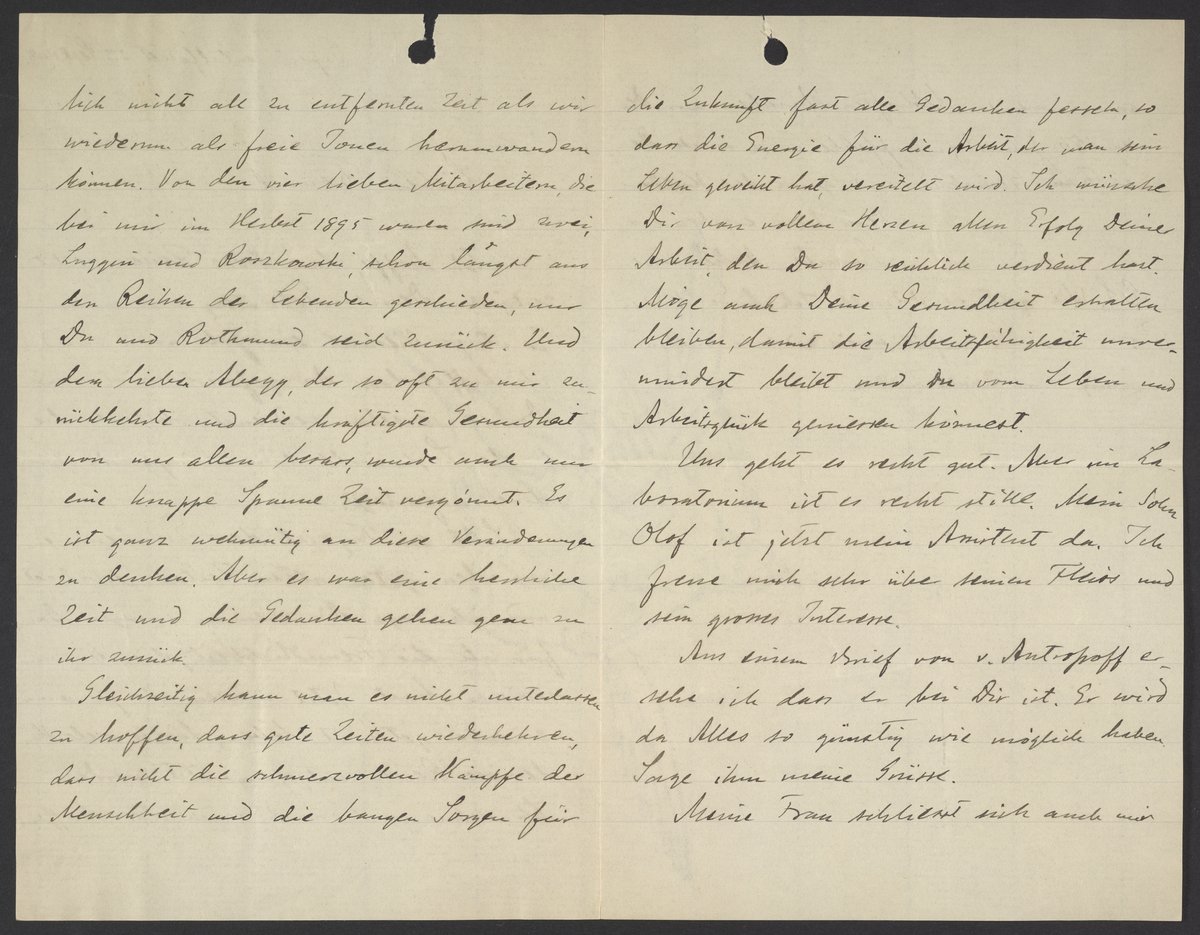 lich nicht all zu entfernten Zeit als wir
wiederum als freie Ionen herumwandern
können. Von den vier lieben Mitarbeitern, die
bei mir im Herbst 1895 waren sind zwei,
Luggin und Roszkowski, schon längst aus
den Reihen der Lebenden geschieden, nur
Du und Rothmund seid zurück. Und
dem lieben Abegg, der so oft zu mir zu-
rückkehrte und die kräftigste Gesundheit
von uns allen besass, wurde auch nur
eine knappe Spanne Zeit vergönnt. Es
ist ganz wehmütig an diese Veränderungen
zu denken. Aber es war eine herrliche
Zeit und die Gedanken gehen gern zu
ihr zurück.
Gleichzeitig kann man es nicht unterlassen
zu hoffen, dass gute Zeiten wiederkehren,
dass nicht die schmerzvollen Kämpfe der
Menschheit und die bangen Sorgen für
die Zukunft fast alle Gedanken fesseln, so
dass die Energie für die Arbeit, der man sein
Leben geweiht hat, vereitelt wird. Ich wünsche
Dir von vollem Herzen allen Erfolg Deiner
Arbeit, den Du so reichlich verdient hast.
Möge auch Deine Gesundheit erhalten
bleiben, damit die Arbeitsfähigkeit unver-
mindert bleibt und Du vom Leben und
Arbeitsglück geniessen könnest.
Uns geht es recht gut. Aber im La-
boratorium ist es recht stille. Mein Sohn
Olof ist jetzt mein Assistent da. Ich
freue mich sehr übe seinen Fleiss und
sein grosses Interesse.
Aus einem Brief von v. Antropoff er-
sehe ich dass er bei Dir ist. Er wird
da Alles so günstig wie möglich haben
Sage ihm meine Grüsse.
Meine Frau schliesst sich auch mir